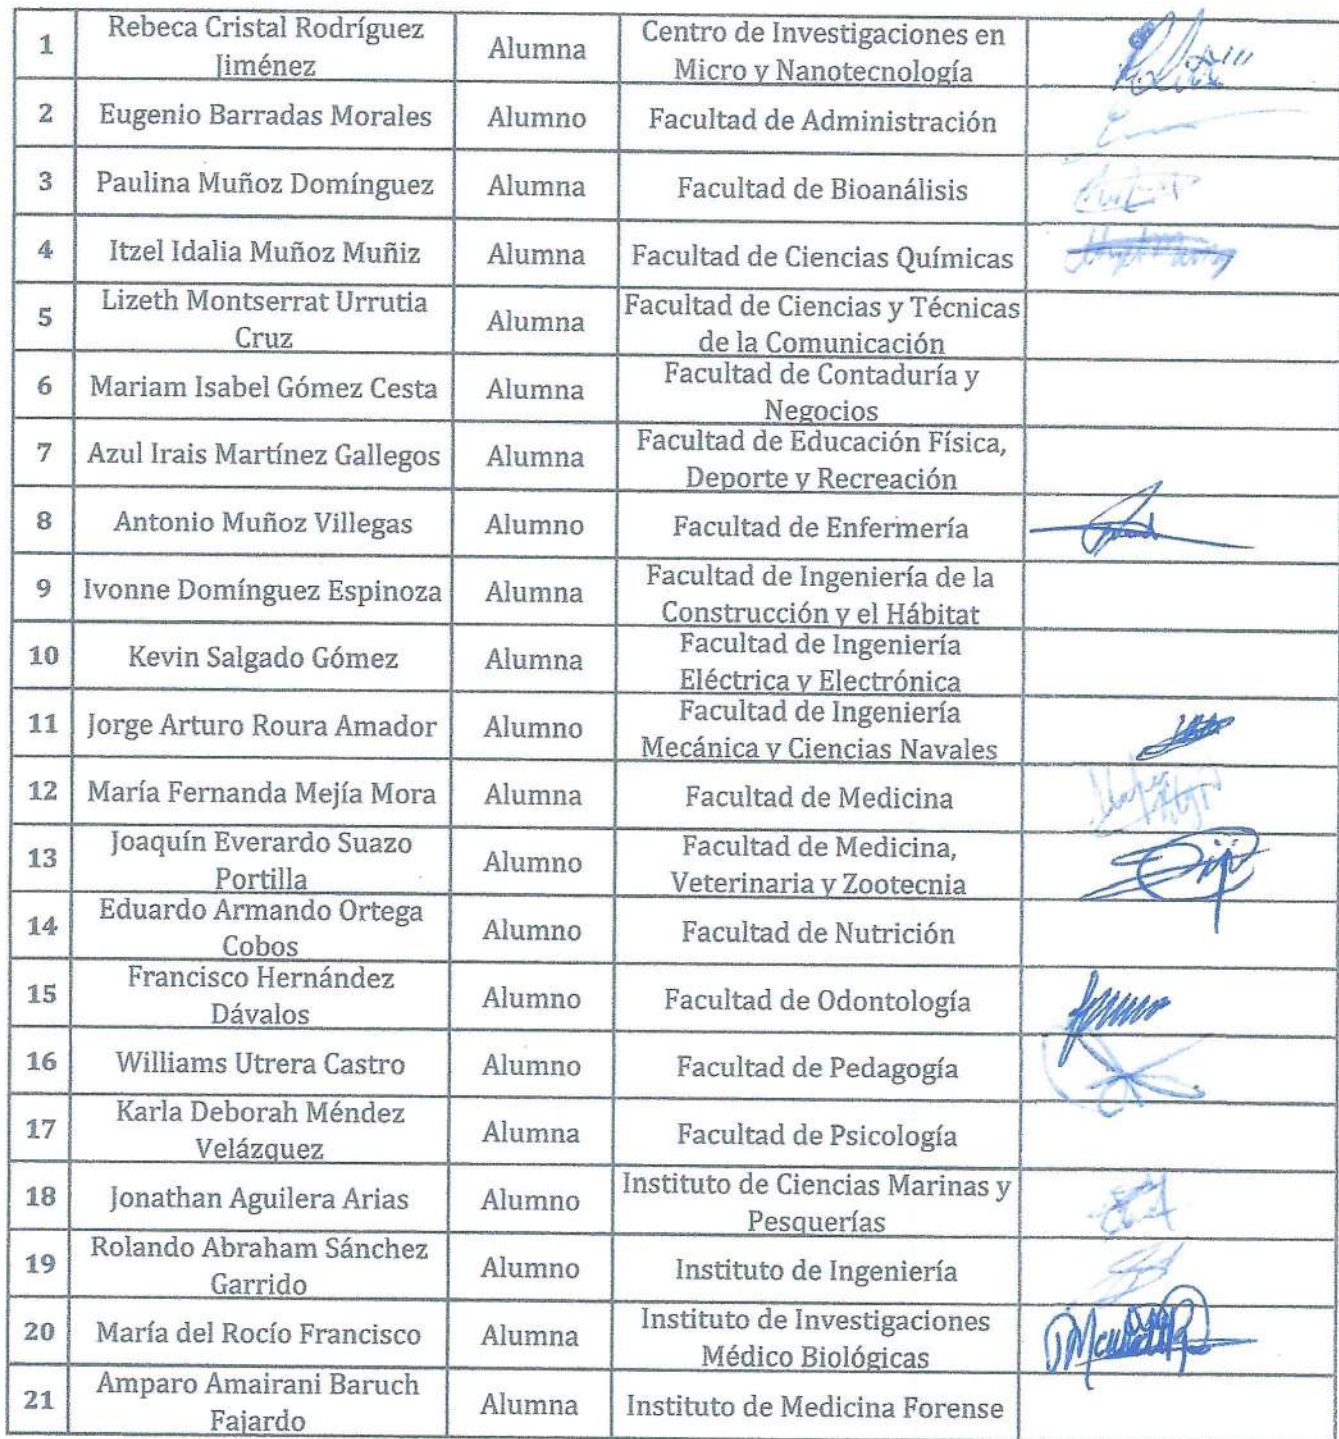 1 Rebeca Cristal Rodríguez Jiménez Alumna Centro de Investigaciones en Micro y Nanotecnología
2 Eugenio Barradas Morales Alumno Facultad de Administración
3 Paulina Muñoz Domínguez Alumna Facultad de Bioanálisis
4 Itzel Idalia Muñoz Muñiz Alumna Facultad de Ciencias Químicas
5 Lizeth Montserrat Urrutia Cruz Alumna Facultad de Ciencias y Técnicas de la Comunicación
6 Mariam Isabel Gómez Cesta Alumna Facultad de Contaduría y Negocios
7 Azul Irais Martínez Gallegos Alumna Facultad de Educación Física, Deporte y Recreación
8 Antonio Muñoz Villegas Alumno Facultad de Enfermería
9 Ivonne Domínguez Espinoza Alumna Facultad de Ingeniería de la Construcción y el Hábitat
10 Kevin Salgado Gómez Alumna Facultad de Ingeniería Eléctrica y Electrónica
11 Jorge Arturo Roura Amador Alumno Facultad de Ingeniería Mecánica y Ciencias Navales
12 María Fernanda Mejía Mora Alumna Facultad de Medicina
13 Joaquín Everardo Suazo Portilla Alumno Facultad de Medicina, Veterinaria y Zootecnia
14 Eduardo Armando Ortega Cobos Alumno Facultad de Nutrición
15 Francisco Hernández Dávalos Alumno Facultad de Odontología
16 Williams Utrera Castro Alumno Facultad de Pedagogía
17 Karla Deborah Méndez Velázquez Alumna Facultad de Psicología
18 Jonathan Aguilera Arias Alumno Instituto de Ciencias Marinas y Pesquerías
19 Rolando Abraham Sánchez Garrido Alumno Instituto de Ingeniería
20 María del Rocío Francisco Alumna Instituto de Investigaciones Médico Biológicas
21 Amparo Amairani Baruch Fajardo Alumna Instituto de Medicina Forense